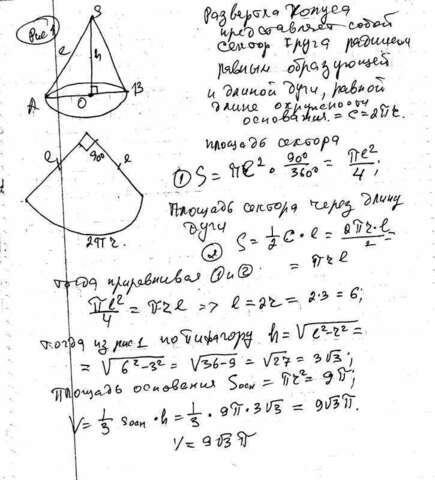 Рис 1
S
l
h
A
O
B
Развертка конуса
представляет собой
сектор круга радиусом
равным образующей
и длиной дуги, равной
длине окружности
основания. = C = 2πr.
l
90°
l
2πr.
площадь сектора
① S = πl² · 90°/360° = πl²/4;
Площадь сектора через длину
дуги
② S = 1/2 C · l = 2πr·l/2 =
= πrl
тогда приравнивая ① и ②
πl²/4 = πrl => l = 2r = 2·3 = 6;
тогда из рис 1 по Пифагору h = √l²-r² =
= √6²-3² = √36-9 = √27 = 3√3;
Площадь основания Sосн = πr² = 9π;
V = 1/3 Sосн · h = 1/3 · 9π · 3√3 = 9√3π.
V = 9√3 π